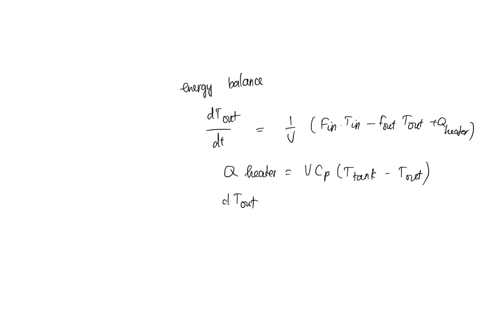 energy balance
dTout/dt = 1/V (Fin · Tin − fout Tout + Qheater)
Q heater = VCp (Ttank − Tout)
dTout